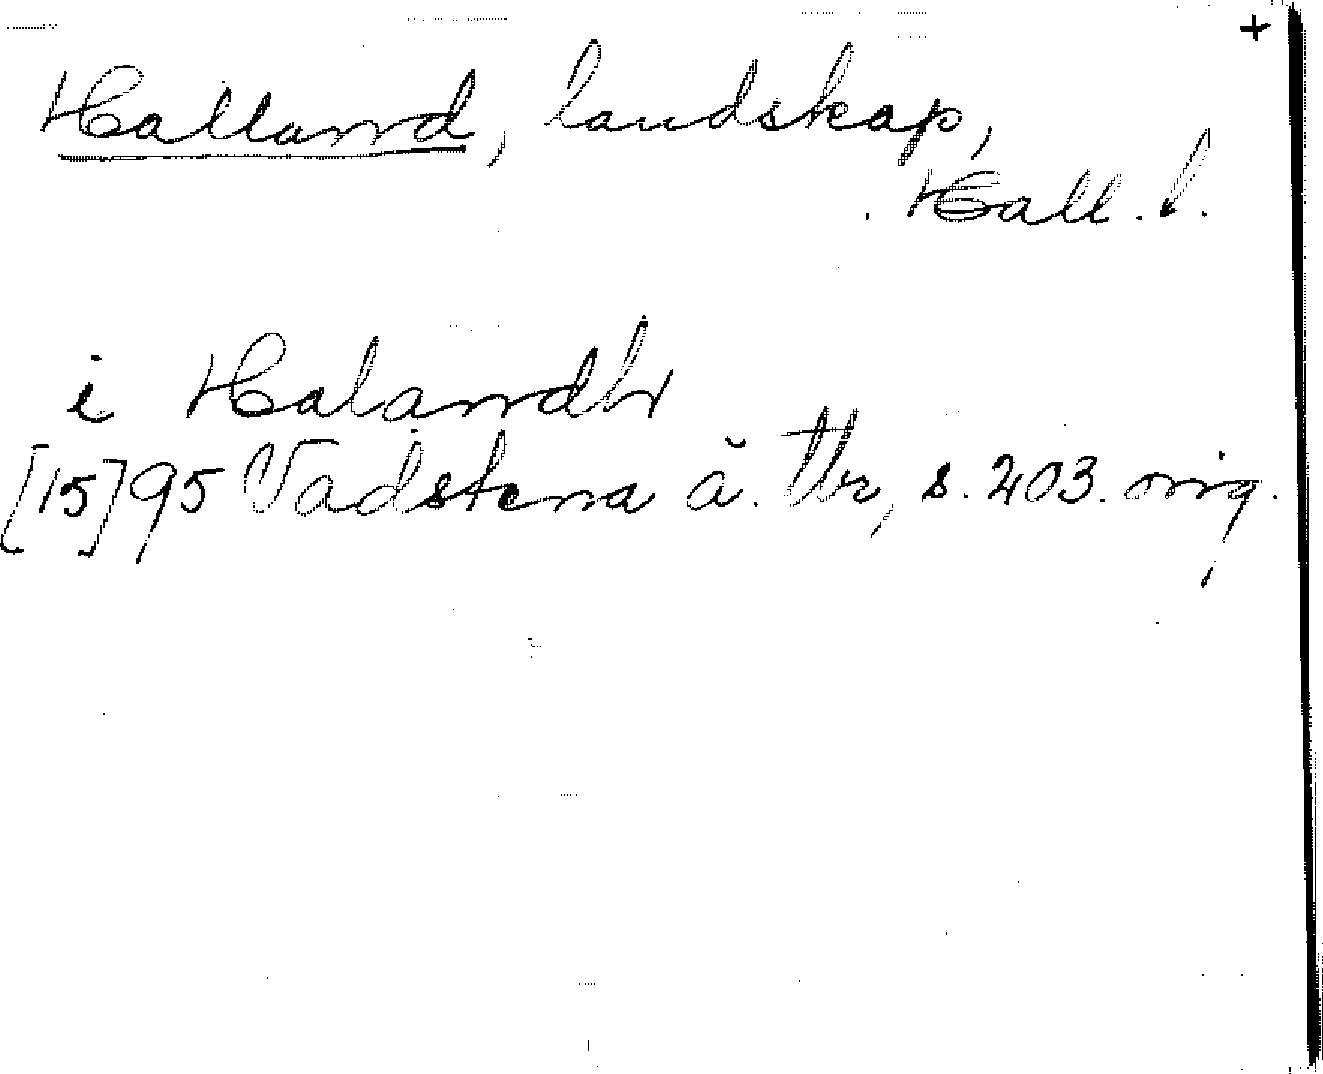 +
Halland, landskap,
Hall. l.
i Halandh
[15]95 Vadstena ä. Tb, s. 203. orig.